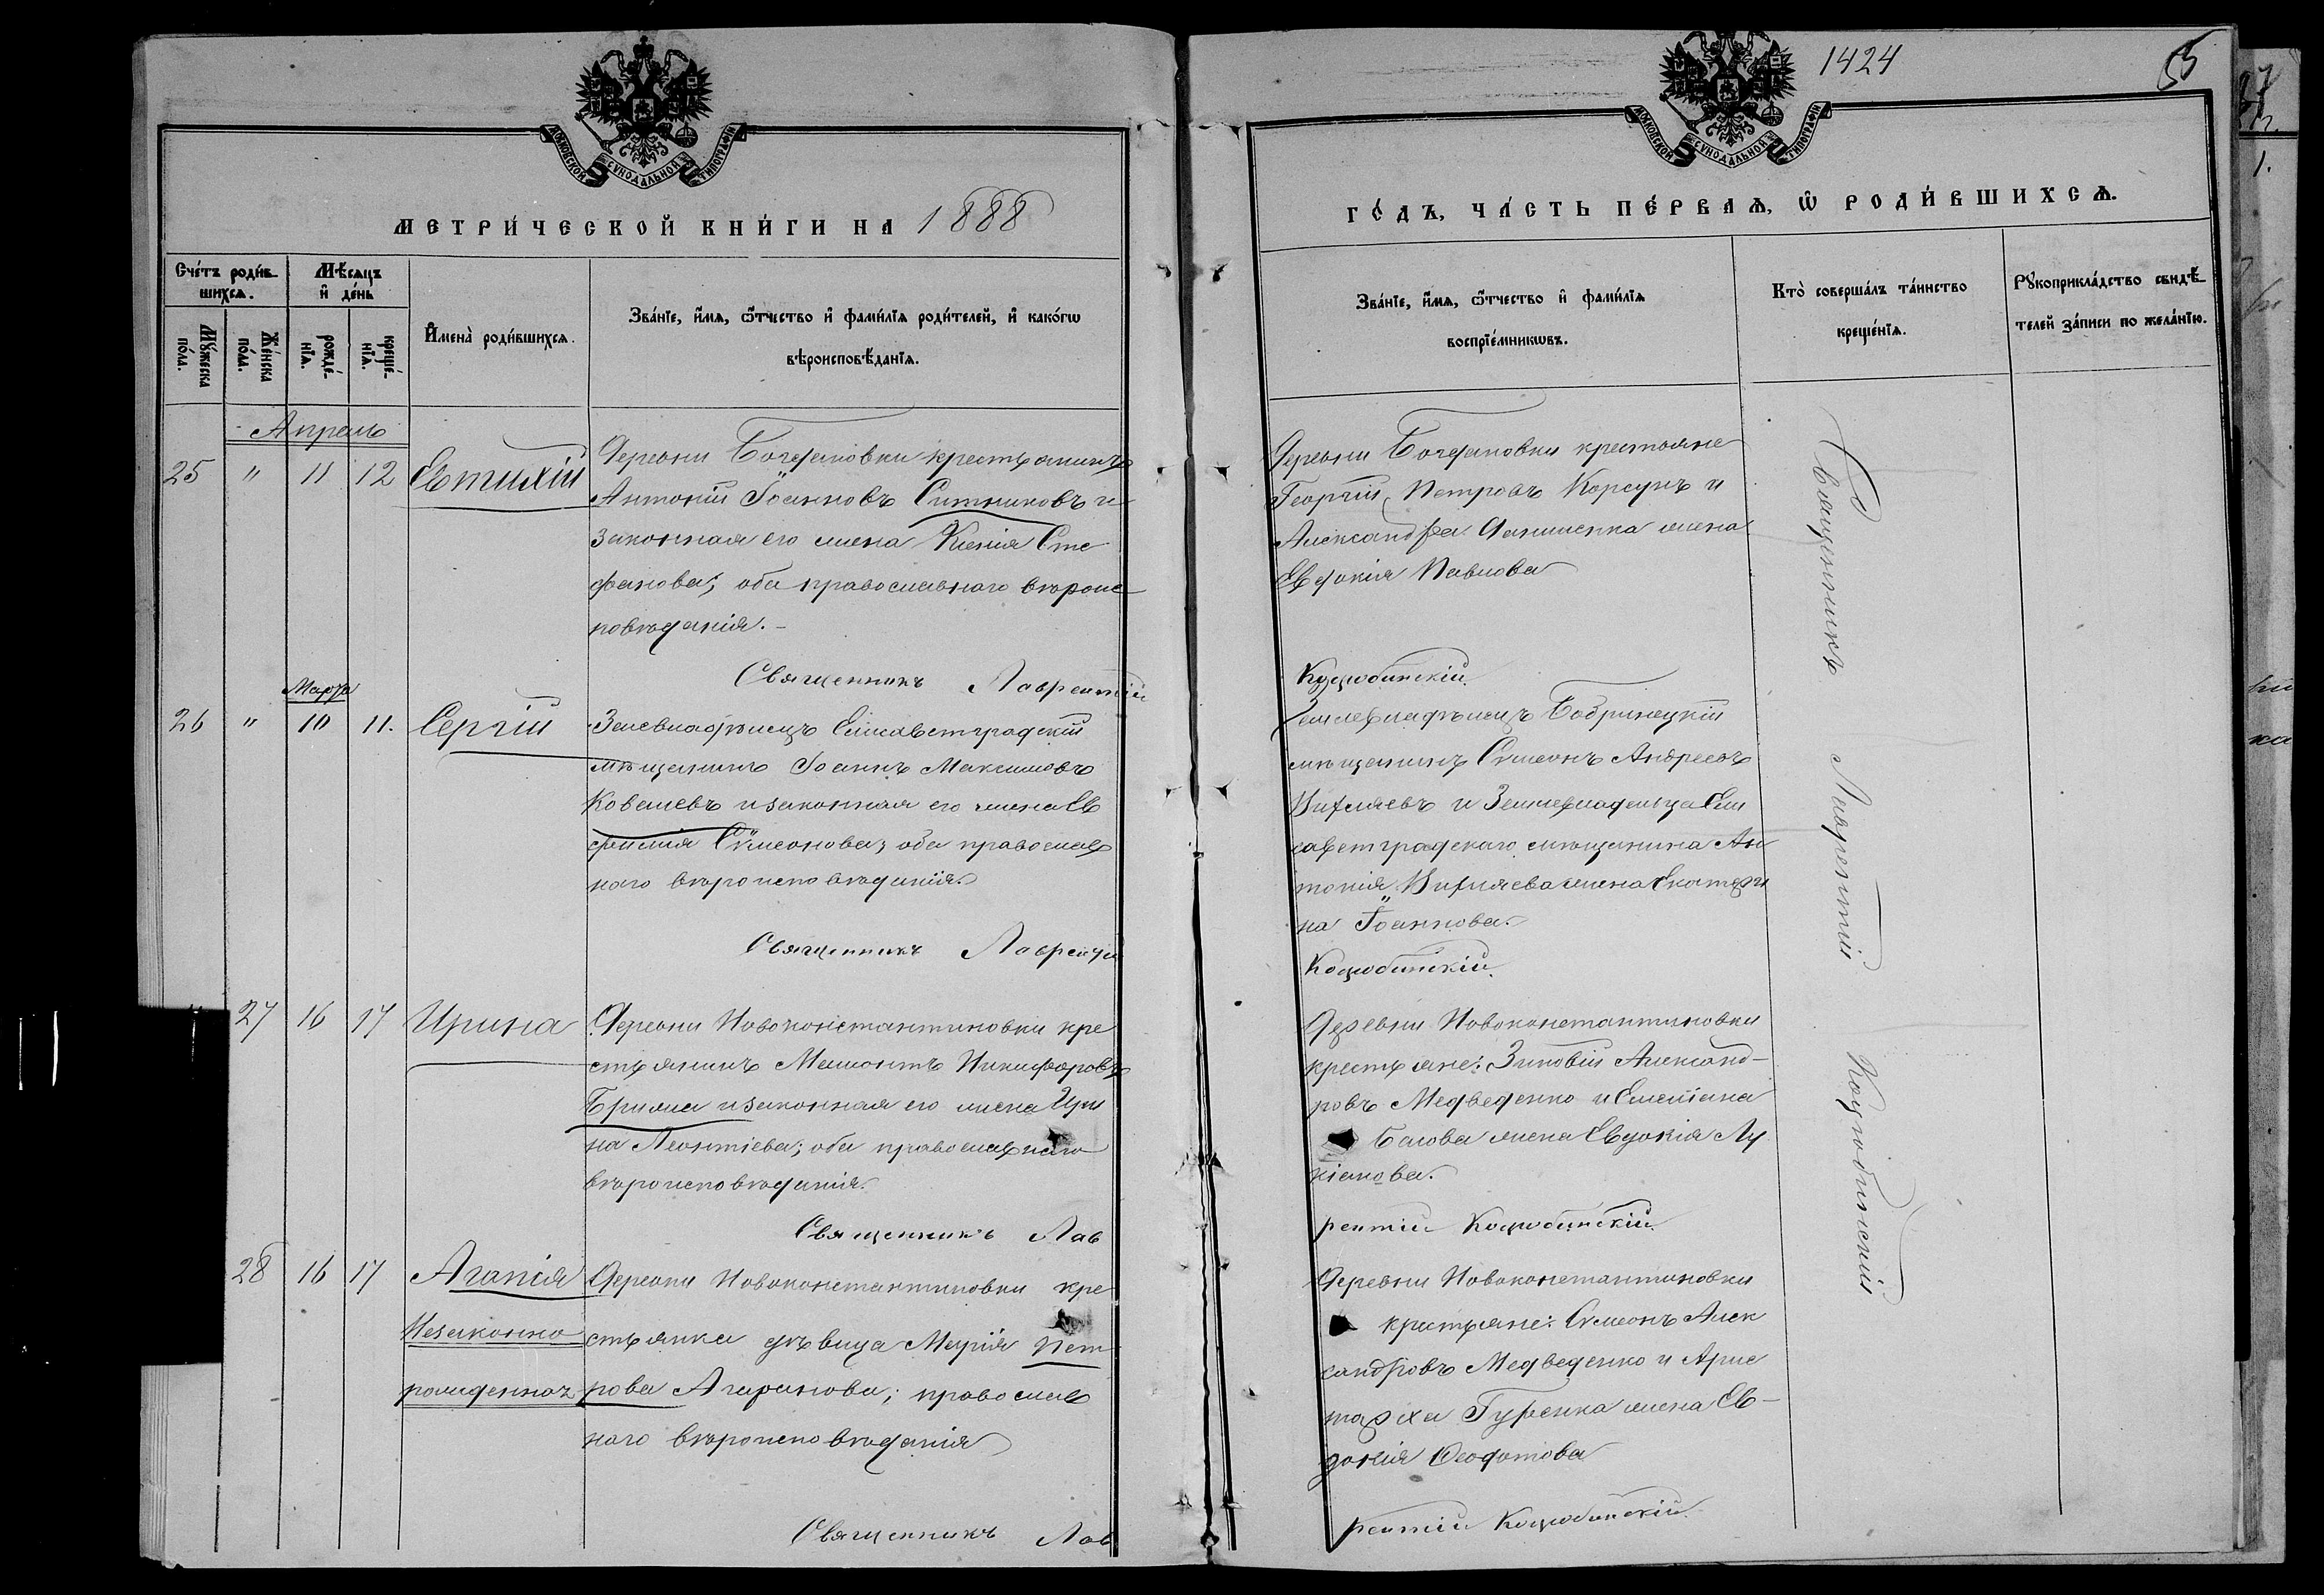 МОСКОВСКОЙ СѴНОДАЛЬНОЙ ТИПОГРАФІИ
МЕТРИ́ЧЕСКОЙ КНИ́ГИ НА 1888
Сче́тъ роди́в-
шихсѧ.
Мѣ́сѧцъ
и҆ де́нь
Мꙋ́жеска
по́ла.
Же́нска
по́ла.
рожде́-
нїѧ.
креще́-
нїѧ.
И҆мена̀ роди́вшихсѧ.
Зва́нїе, и҆́мѧ, ѻ҆́тчество и҆ фами́лїѧ роди́телей, и҆ како́гѡ
вѣроисповѣ́данїѧ.
Апрель
25 " 11 12 Евтихій
Деревни Богдановки крестьянинъ
Антоній Іоанновъ Ситниковъ и
законная его жена Ксенія Сте
фанова; оба православнаго вѣроис
повѣданія.-
Священникъ Лаврентій
Марта
26 " 10 11. Сергій
Землевладѣлецъ Елисаветградскій
мѣщанинъ Іоаннъ Максимовъ
Ковалевъ и законная его жена Ев
фимія Сѵмеонова; оба православ
наго вѣроисповѣданія.
Священникъ Лаврентій
" 27 16 17 Ирина
Деревни Новоконстантиновки кре
стьянинъ Мамонтъ Никифоровъ
Брила и законная его жена Ири
на Леонтіева; оба православнаго
вѣроисповѣданія.
Священникъ Лав
28 16 17 Агапія
Незаконно
рожденная
Деревни Новоконстантиновки кре
стьянка дѣвица Марія Пет
рова Агаркова; православ
наго вѣроисповѣданія
Священникъ Лав
1424
МОСКОВСКОЙ СѴНОДАЛЬНОЙ ТИПОГРАФІИ
ГО́ДЪ, ЧА́СТЬ ПЕ́РВАѦ, Ѡ҆ РОДИ́ВШИХСѦ.
Зва́нїе, и҆́мѧ, ѻ҆́тчество и҆ фами́лїѧ
воспрїе́мникѡвъ.
Кто̀ соверша́лъ та́инство
креще́нїѧ.
Рꙋкоприкла́дство свидѣ́-
телей за́писи по жела́нїю.
Деревни Богдановки крестьяне
Георгій Петровъ Корсунъ и
Александра Данименка жена
Евдокія Павлова
Коцюбинскій.
Землевладѣлецъ Бобринецкій
мѣщанинъ Сѵмеонъ Андреевъ
и Землевладельца Ели
саветградскаго мѣщанина Ан
тонія жена Екатери
на Іоаннова.
Коцюбинскій.
Деревни Новоконстантиновки
крестьяне: Зиновій Александ-
ровъ Медведенко и Емелiана
Балова жена Евдокія Лу
кіанова.
рентій Коцюбинскій.
Деревни Новоконстантиновки
крестьяне: Сѵмеонъ Алек
сандровъ Медведенко и Арис
тарха Гуренка жена Ев-
докія Ѳеодотова
рентій Коцюбинскій.
Священникъ Лаврентій Коцюбинскій